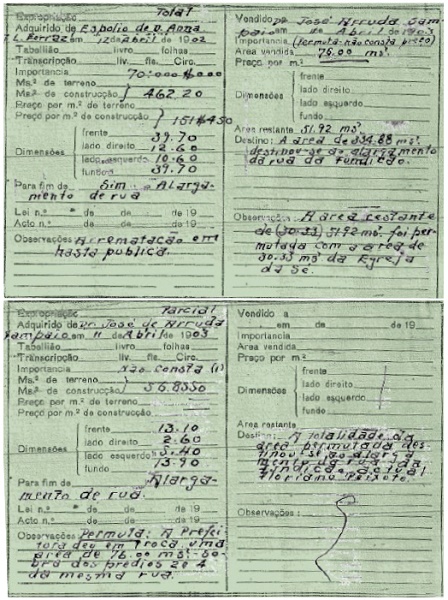 Expropriação Total
Adquirido de Espolio de D. Anna
T. L. Ferraz em 12 de Abril de 1902
Tabellião livro folhas
Transcripção liv. fls. Circ.
Importancia 70:000$000
Ms.² de terreno
Ms.² de construcção 462,20
Preço por m.² de terreno
Preço por m.² de construcção 151$450
Dimensões
frente 39.70
lado direito 12.60
lado esquerdo 10.60
fundo 39.70
Para fim de Sim - Alarga-
mento de rua
Lei n.º de de de 19
Acto n.º de de de 19
Observações Arrematação em
hasta publica.
Vendido a Dr. José Arruda Sam
paio em de Abril de 1903
Importancia (permuta-não consta preço)
Area vendida 76.00 ms².
Preço por m.²
Dimensões
frente
lado direito
lado esquerdo
fundo
Area restante 51.92 ms².
Destino: A area de 334.88 ms².
destinou-se ao alargamento
da rua da Fundição.
Observações: A area restante
de (30.33) 51.92 ms². foi per-
mutada com a area de
30.33 ms² da Egreja
da Sé.
Expropriação Parcial
Adquirido de Dr. José de Arruda
Sampaio em 11 de Abril de 1903
Tabellião livro folhas
Transcripção liv. fls. Circ.
Importancia Não consta (1)
Ms.² de terreno
Ms.² de construcção 56.8550
Preço por m.² de terreno
Preço por m.² de construcção
Dimensões
frente 13.10
lado direito 2.60
lado esquerdo 5.40
fundo 13.90
Para fim de Alarga-
mento de rua.
Lei n.º de de de 19
Acto n.º de de de 19
Observações Permuta: A Prefei
tora deu em troca, uma
area de 76.00 ms². so-
bra dos predios 2 e 4
da mesma rua.
Vendido a
em de de 19
Importancia
Area vendida
Preço por m.²
Dimensões
frente
lado direito
lado esquerdo
fundo
Area restante
Destino: A totalidade da
area permutada des-
tinou-se ao alarga
mento da rua da
Fundição, actual
Floriano Peixoto.
Observações: